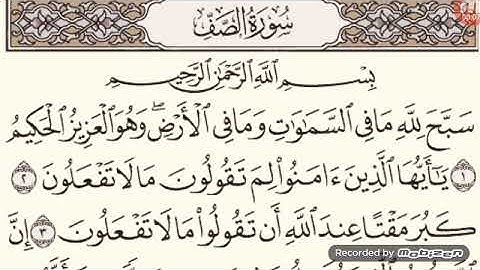 سُورَةُ الصَّفِّ
بِسْمِ اللَّهِ الرَّحْمَٰنِ الرَّحِيمِ
سَبَّحَ لِلَّهِ مَا فِي السَّمَاوَاتِ وَمَا فِي الْأَرْضِ ۖ وَهُوَ الْعَزِيزُ الْحَكِيمُ
١ يَا أَيُّهَا الَّذِينَ ءَامَنُوا لِمَ تَقُولُونَ مَا لَا تَفْعَلُونَ ٢
كَبُرَ مَقْتًا عِندَ اللَّهِ أَن تَقُولُوا مَا لَا تَفْعَلُونَ ٣ إِنَّ
Recorded by MOBIZEN